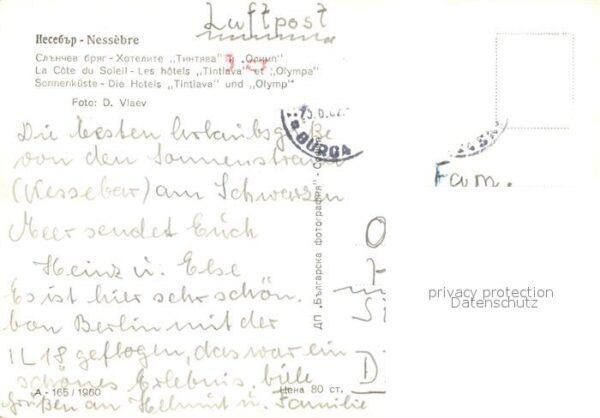 Luftpost
Несебър - Nessèbre
Слънчев бряг - Хотелите „Тинтява" и „Олимп"
La Côte du Soleil - Les hôtels „Tintiava" et „Olympa"
Sonnenküste - Die Hotels „Tintiava" und „Olymp"
Foto: D. Vlaev
Die besten Urlaubsgrüße
von den Sonnenstrand
(Nessebar) am Schwarzen
Meer sendet Euch
Heinz u. Else
Es ist hier sehr schön.
von Berlin mit der
IL 18 geflogen, das war ein
schönes Erlebnis. viele
Grüßen an Helmut u. Familie
А - 165 / 1960
Цена 80 ст.
ДП „Българска фотография" -
BURGA
Fam.
privacy protection
Datenschutz